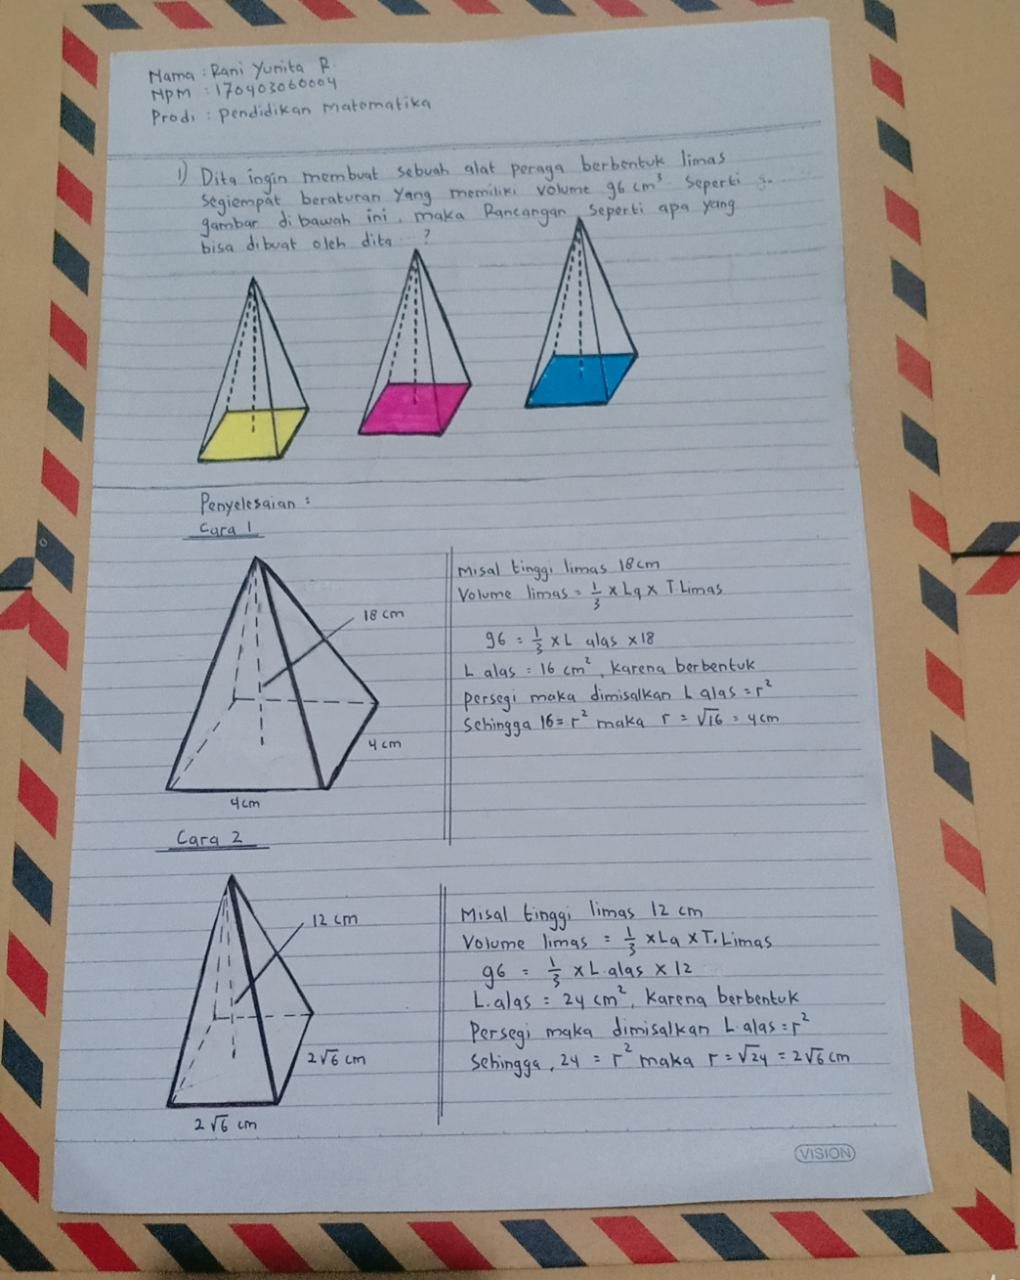 Nama : Rani Yunita R.
NPM : 170403060004
Prodi : Pendidikan Matematika
1) Dita ingin membuat sebuah alat peraga berbentuk limas
segiempat beraturan yang memiliki volume 96 cm³ seperti
gambar di bawah ini, maka Rancangan seperti apa yang
bisa dibuat oleh dita ...?
Penyelesaian :
Cara 1
18 cm
4 cm
4 cm
Misal tinggi limas 18 cm
Volume limas = 1/3 x La x T.Limas
96 = 1/3 x L alas x 18
L alas = 16 cm², karena berbentuk
Persegi maka dimisalkan L alas = r²
Sehingga 16 = r² maka r = √16 = 4 cm
Cara 2
12 cm
2√6 cm
2√6 cm
Misal tinggi limas 12 cm
Volume limas = 1/3 x La x T. Limas
96 = 1/3 x L.alas x 12
L.alas = 24 cm², karena berbentuk
Persegi maka dimisalkan L.alas = r²
Sehingga, 24 = r² maka r = √24 = 2√6 cm
VISION